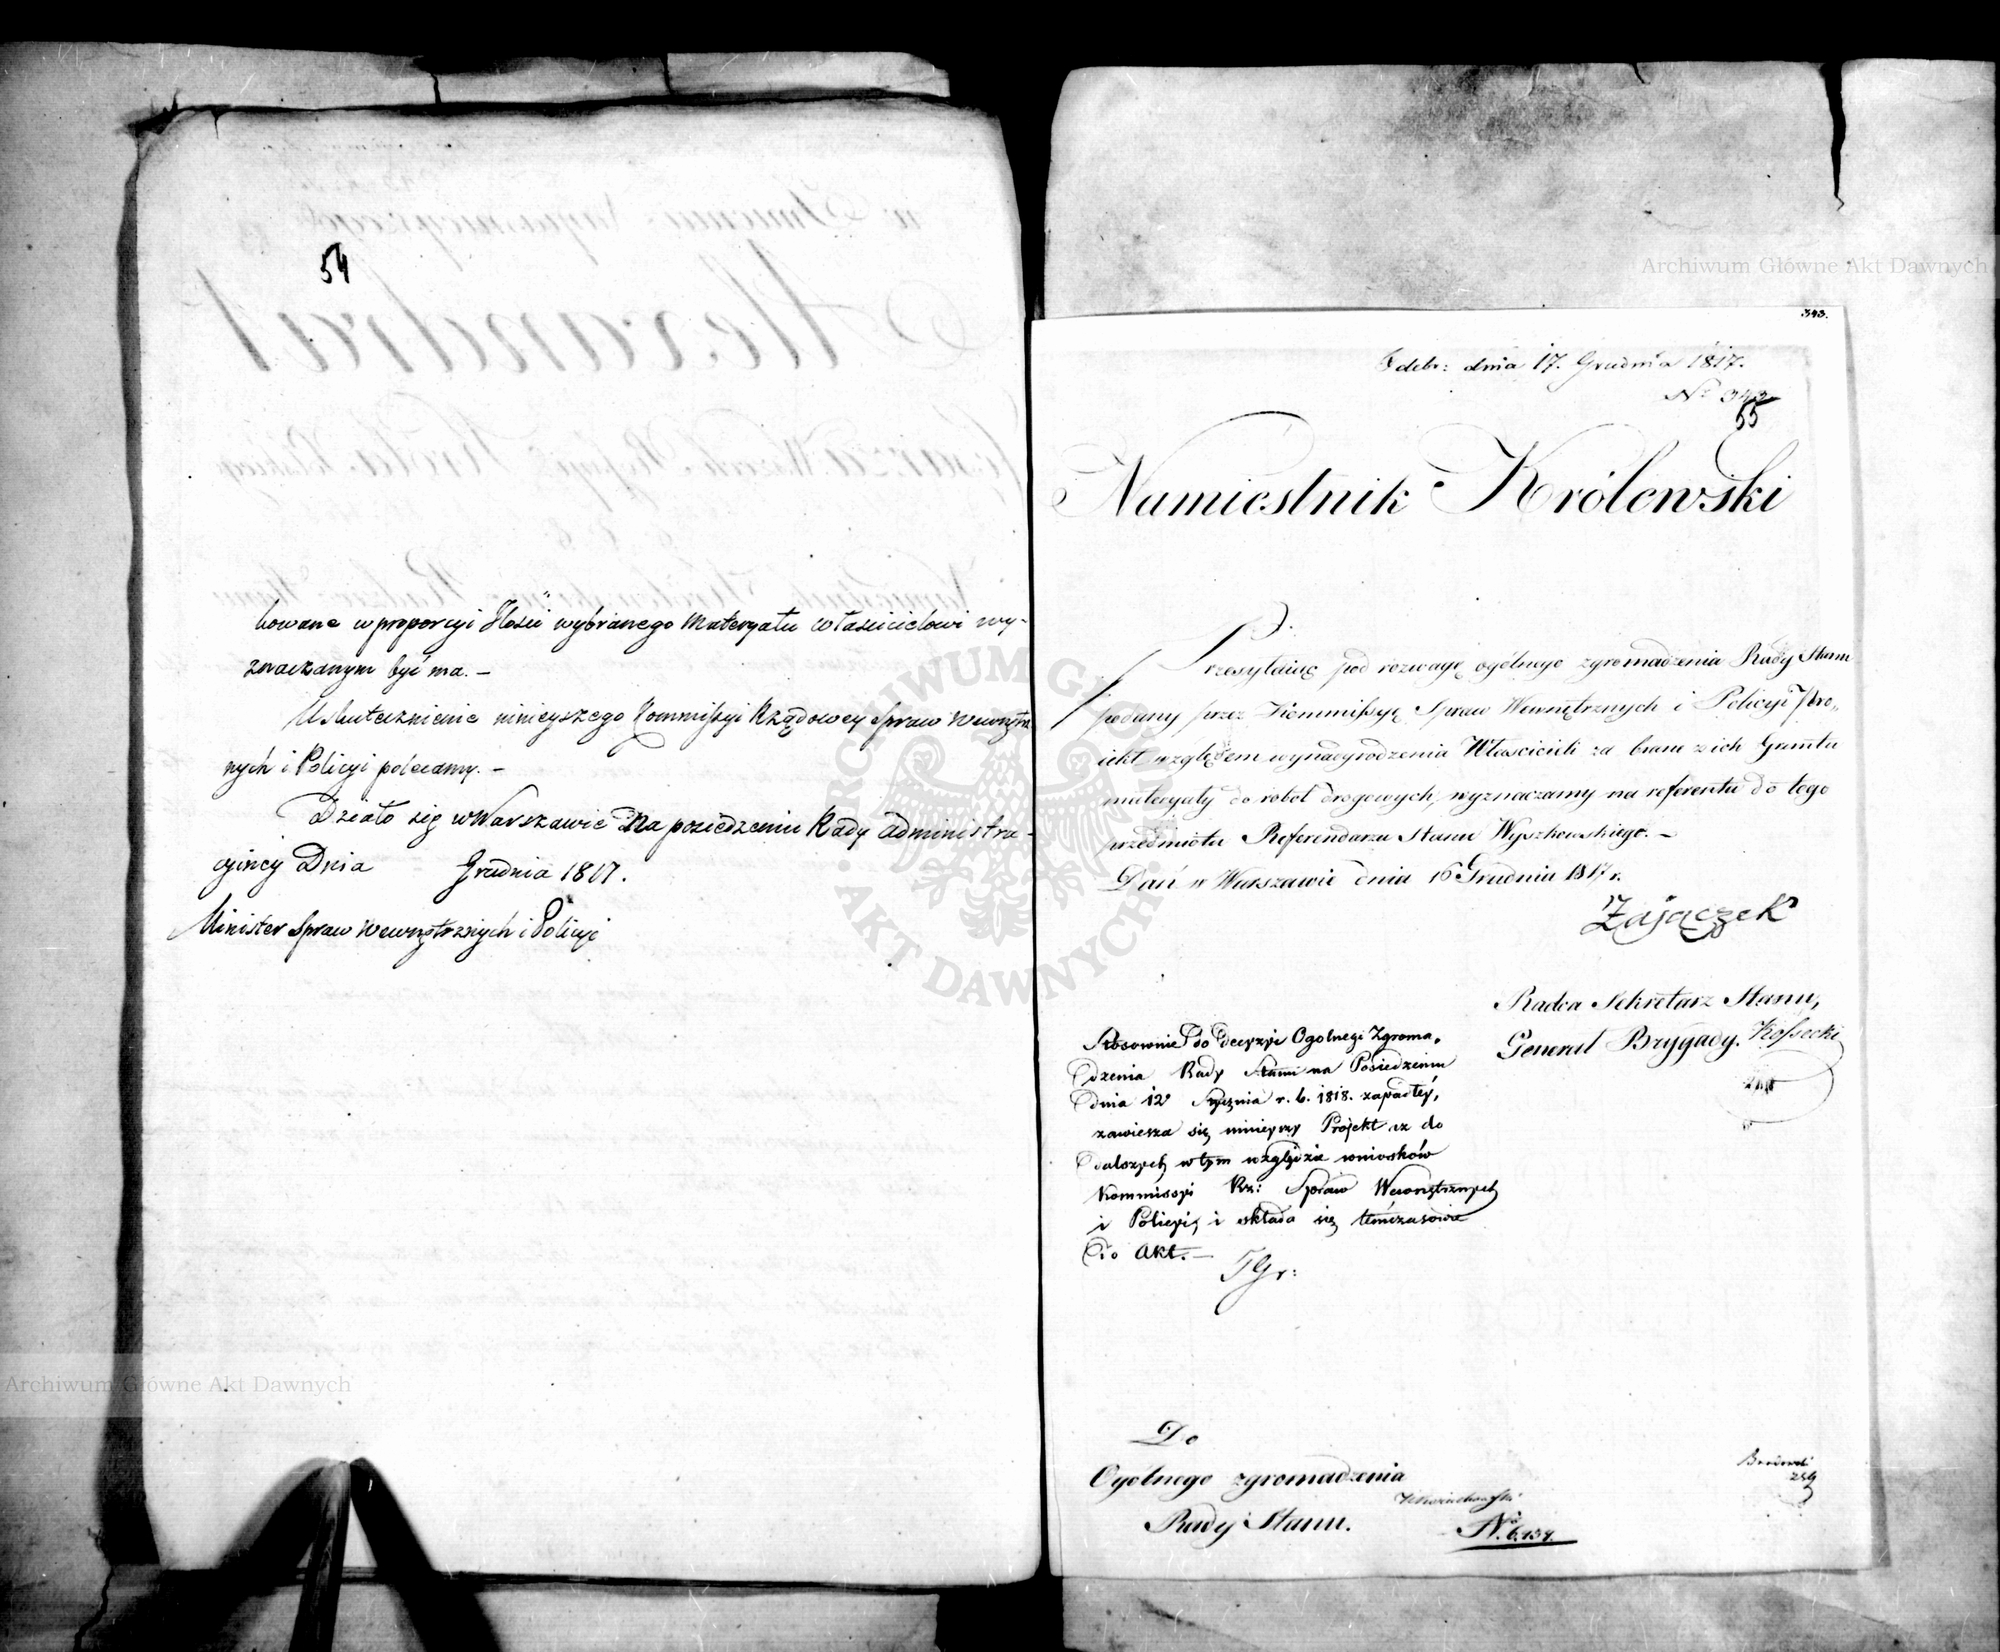 54
kowane w proporcyi Ilości wybranego Materyału właścicielowi wy-
znaczanym być ma. —
Uskutecznienie ninieyszego Kommissyi Rządowey Spraw Wewnętrz
nych i Policyi polecamy. —
Działo się w Warszawie na posiedzeniu Rady Administra-
cyiney Dnia Grudnia 1817.
Minister Spraw Wewnętrznych i Policyi
343.
Odebr: dnia 17. Grudnia 1817.
Nº 343
55
Namiestnik Królewski
Przesyłaiąc pod rozwagę ogólnego zgromadzenia Rady Stanu
podany przez Kommissyę Spraw Wewnętrznych i Policyi Pro-
iekt względem wynadgrodzenia Właścicieli za brane z ich Gruntu
materyały do robot drogowych, wyznaczamy na referenta do tego
przedmiotu Referendarza Stanu Wyszkowskiego. —
Dań w Warszawie dnia 16 Grudnia 1817 r.
Zajączek
Radca Sekretarz Stanu,
Generał Brygady. Kossecki
Stosownie do decyzyi Ogolnego Zgroma-
dzenia Rady Stanu na Posiedzeniu
dnia 12 Stycznia r. b. 1818. zapadłéy,
zawiesza się ninieyszy Projekt aż do
dalszych w tym względzie wniosków
Kommissyi Rz: Spraw Wewnętrznych
i Policyi, i składa się témczasowie
do Akt. —
Do
Ogólnego zgromadzenia
Rady Stanu.
Nº 6,134.
Archiwum Główne Akt Dawnych
Archiwum Główne Akt Dawnych
ARCHIWUM GŁÓWNE AKT DAWNYCH